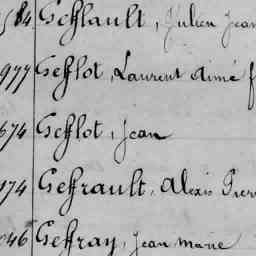 584 Gefflault, Julien Jean
977 Gefflot, Laurent Aimé f
674 Gefflot, Jean
174 Geffrault, Alexis Pierre
046 Geffray, Jean Marie